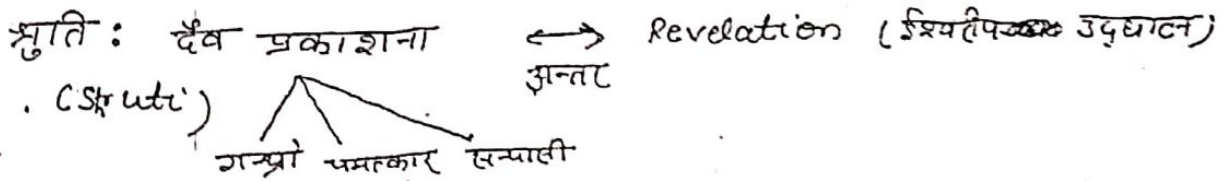 श्रुति : दैव प्रकाशना ⟷ Revelation (ईश्वरीय उद्घाटन)
अन्तर
(Shruti)
ग्रन्थो चमत्कार सन्यासी